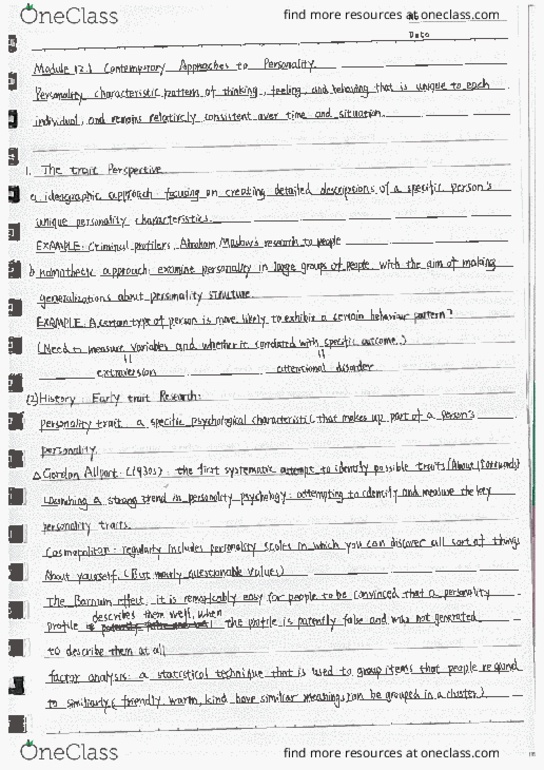 OneClass find more resources at oneclass.com
Date
Module 12.1 Contemporary Approaches to Personality
Personality characteristic pattern of thinking, feeling, and behaving that is unique to each
individual, and remains relatively consistent over time and situation.
1. The trait Perspective
a. ideographic approach: focusing on creating detailed descriptions of a specific person's
unique personality characteristics.
EXAMPLE: Criminal profilers, Abraham Maslow's research to people
b. nomothetic approach: examine personality in large groups of people, with the aim of making
generalizations about personality structure.
EXAMPLE: A certain type of person is more likely to exhibit a certain behaviour pattern?
(Need to measure variables and whether it correlated with specific outcome.)
extraversion attentional disorder
(2) History: Early trait Research:
personality trait a specific psychological characteristic that makes up part of a person's
personality.
Gordon Allport (1930s): the first systematic attempt to identify possible traits (About words)
Launching a strong trend in personality psychology: attempting to identify and measure the key
personality traits.
Cosmopolitan: regularly includes personality scales in which you can discover all sort of things
About yourself. (But mostly questionable values)
The Barnum effect, it is remarkably easy for people to be convinced that a personality
profile describes them well, when the profile is patently false and was not generated
to describe them at all
factor analysis: a statistical technique that is used to group items that people respond
to similarly (friendly, warm, kind have similiar meanings, can be grouped in a cluster)
OneClass find more resources at oneclass.com